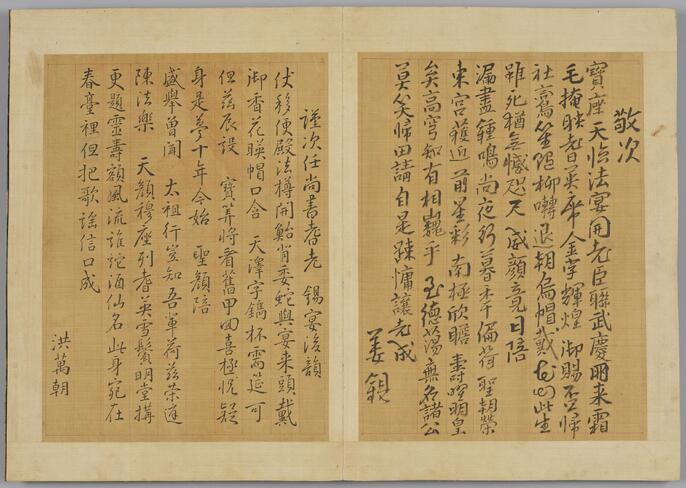 敬次
寶座天臨法宴開老臣聯武慶來霜
毛掩映耆英席金字輝煌御賜杯帰
社笙隨柳囀退朝烏帽戴花此生
雖死猶無憾咫尺 威顔竟日陪
漏盡鍾鳴尚夜行暮年偏荷聖朝榮
東宮獲近前星彩南極欣瞻壽曜明皇
矣高穹知有相巍乎 至德蕩無名諸公
莫笑帰田請自是踈慵讓老成
姜鋧
謹次任尚書耆老 錫宴後韻
伏移便殿法樽開鮐背委蛇與宴來頭戴
御香花暎帽口含 天澤字鐫杯需筵可
但茲辰設 寶筭將看舊甲回喜極怳疑
身是夢十年今始 聖顔陪
盛擧曾聞 太祖行豈知吾輩荷茲榮迭
陳法樂 天顔穆座列耆英雪鬢明堂搆
更題靈壽額風流誰詑酒仙名此身宛在
春臺裡但把歌謠信口成
洪萬朝